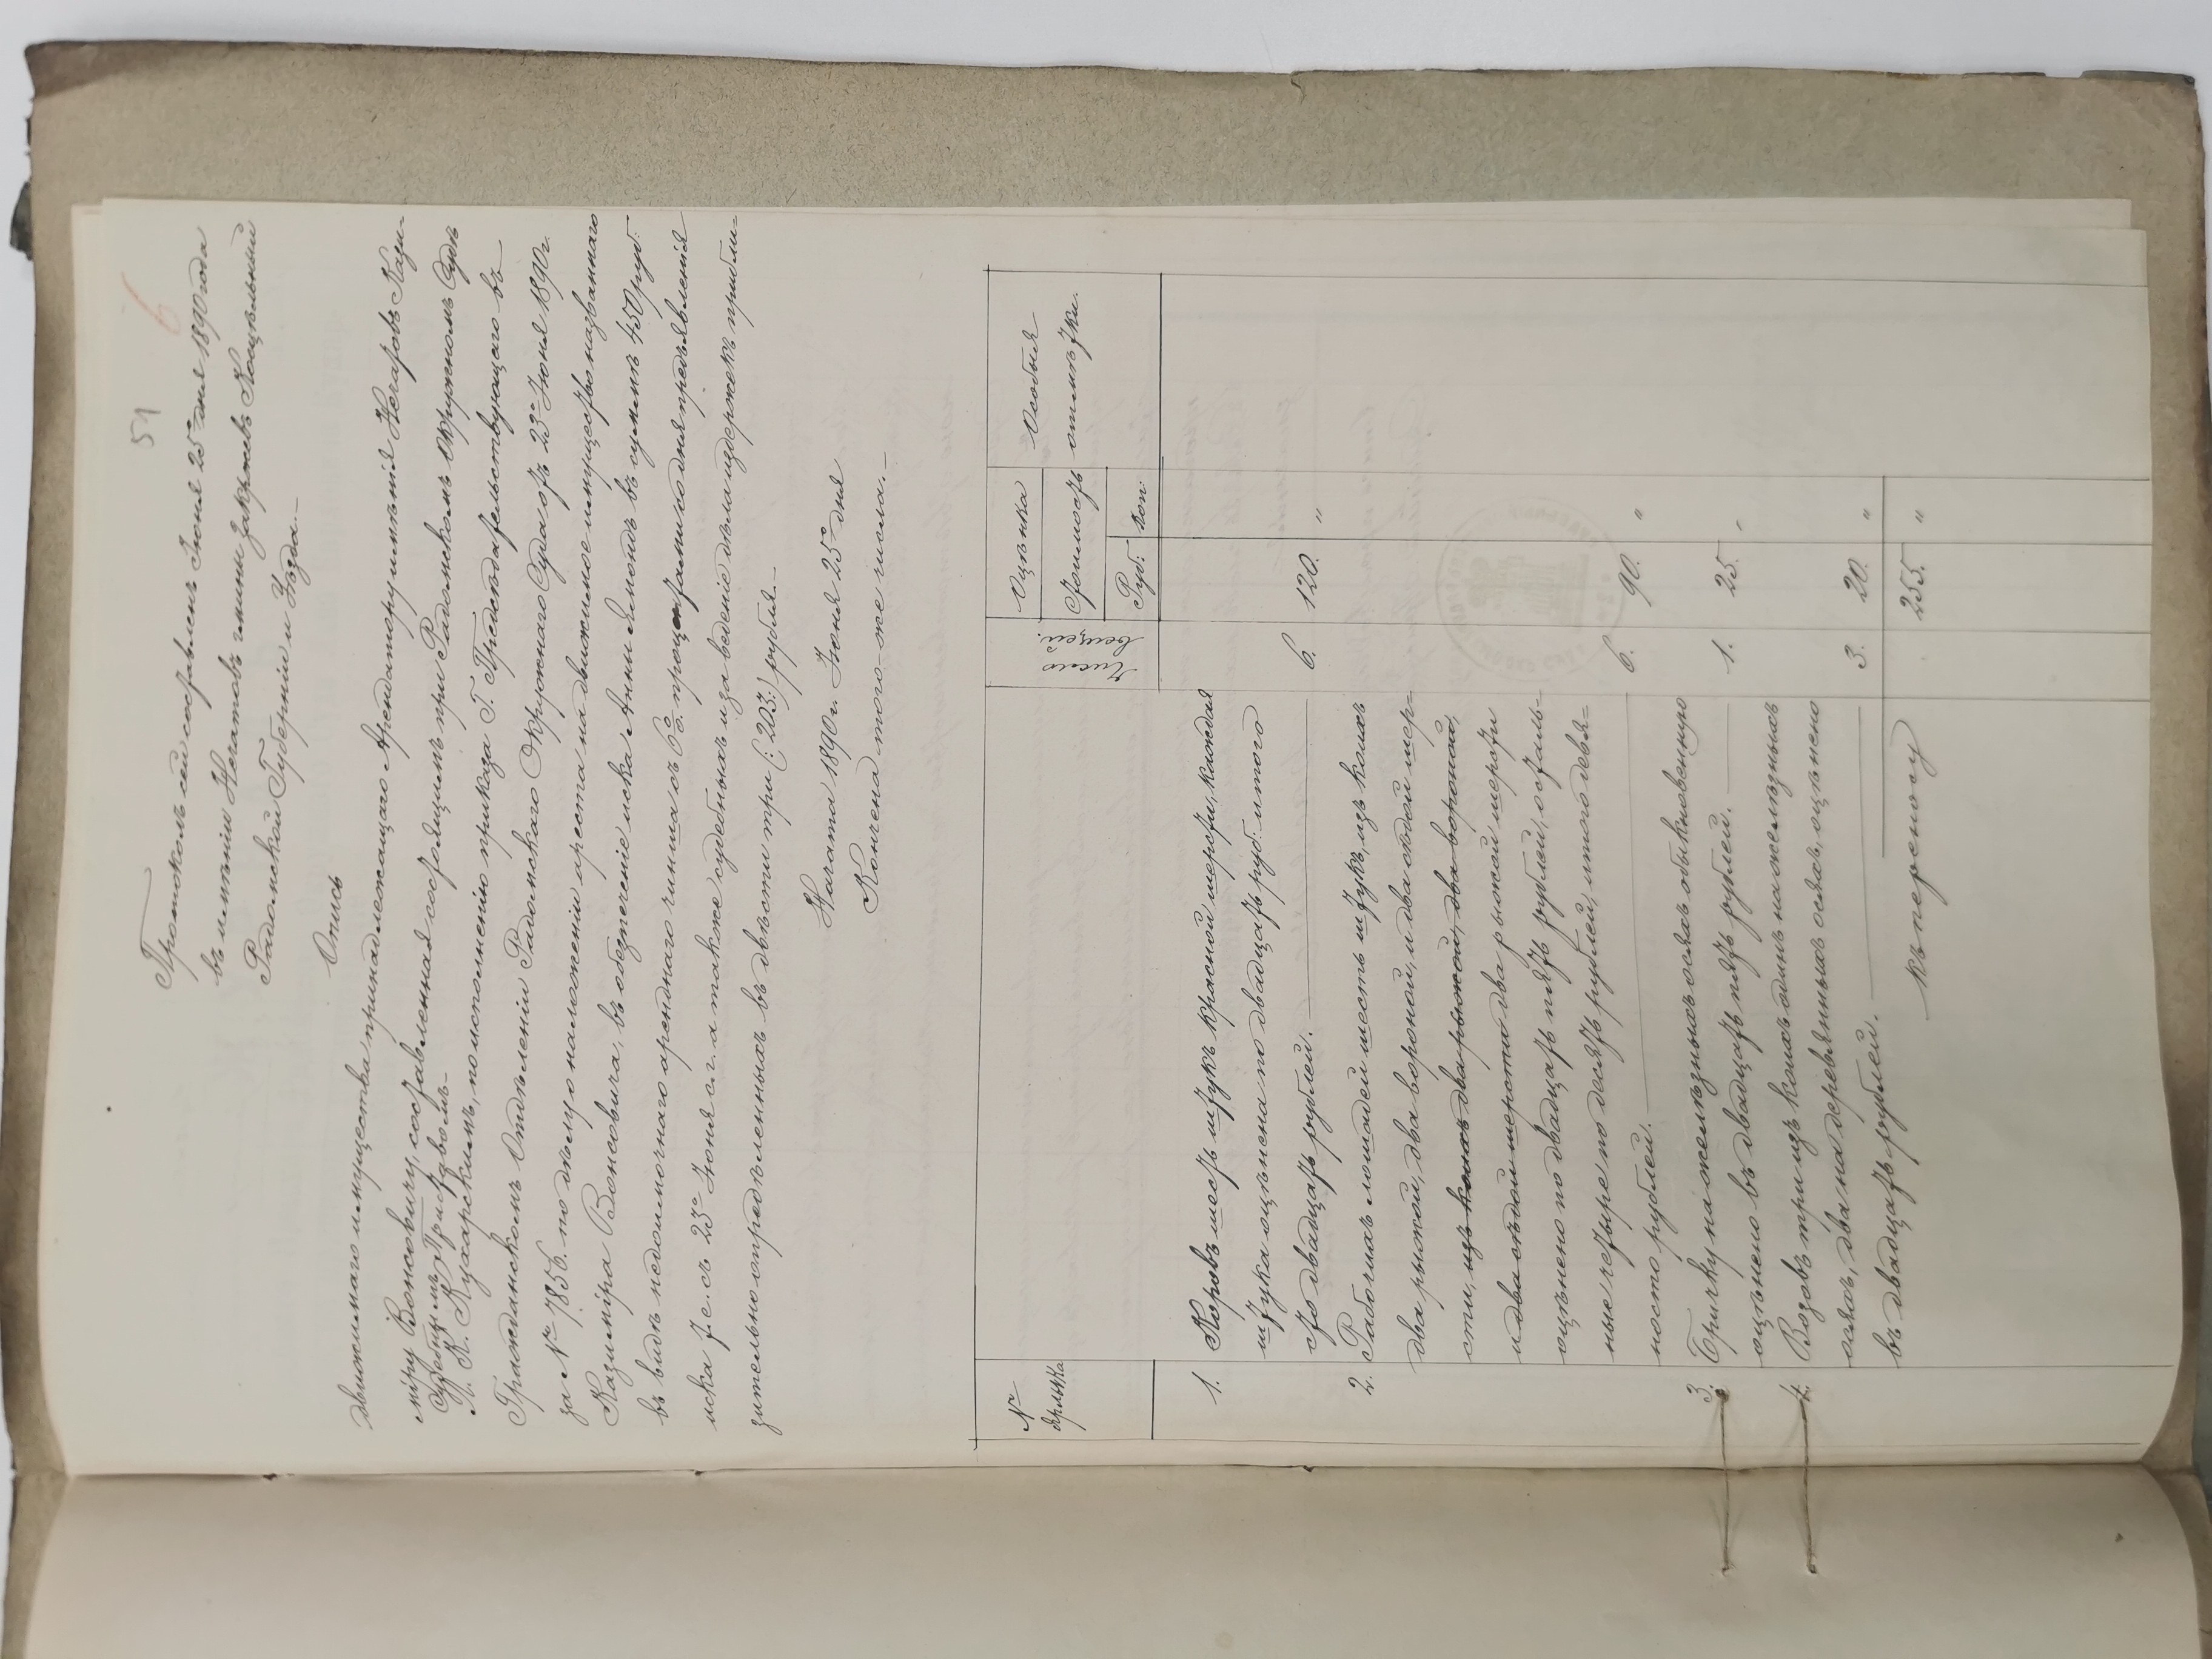 51
6
Протоколъ сей составленъ Іюня 25го дня 1890 года
въ имѣніи Нечатовъ гмины Закржевъ Косцельный
Радомской Губерніи и Уѣзда.—
Опись
движимаго имущества принадлежащаго Арендатору имѣнія Нечатовъ Кази-
міру Вонсовичу, составленная состоящимъ при Радомскомъ Окружномъ Судѣ
Судебнымъ Приставомъ
К. К. Кухарскимъ, по исполненію приказа Г. Предсѣдательствующаго въ
Гражданскомъ Отдѣленіи Радомскаго Окружнаго Суда отъ 23го Іюня 1890 г.
за № 7856. по дѣлу о наложеніи ареста на движимое имущество названнаго
Казиміра Вонсовича, въ обезпеченіе иска Анны въ суммѣ 450 руб:
въ видѣ недоимочнаго аренднаго чинша съ 6% процентами со дня предъявленія
иска т. е. съ 23го Іюня с. г. а также судебныхъ и за веденіе дѣла издержекъ прибли-
зительно опредѣленныхъ въ двѣсти три (: 203 :) рубля.—
Начата 1890 г. Іюня 25го дня
Кончена того-же числа.—
№ Число вещей. Оцѣнка Особыя
стоимость отмѣтки.
Руб: коп:
1. Коровъ шесть штукъ красной шерсти, каждая
штука оцѣнена по двадцать руб: итого
сто двадцать рублей. 6. 120. "
2. Рабочихъ лошадей шесть штукъ, изъ коихъ
два рыжой, два вороной, и два сѣдой шер-
сти, изъ коихъ два рыжой, два вороной,
и два сѣдой шерсти два рыжой шерсти
оцѣнено по двадцать пять рублей, осталь-
ные четыре по десять рублей, итого девя-
носто рублей. 6. 90. "
3. Бричку на желѣзныхъ осяхъ обыкновенную
оцѣнено въ двадцать пять рублей. 1. 25. "
4. Возовъ три изъ коихъ одинъ на желѣзныхъ
осяхъ, два на деревянныхъ осяхъ, оцѣнено
въ двадцать рублей. 3. 20. "
къ переносу 255. "